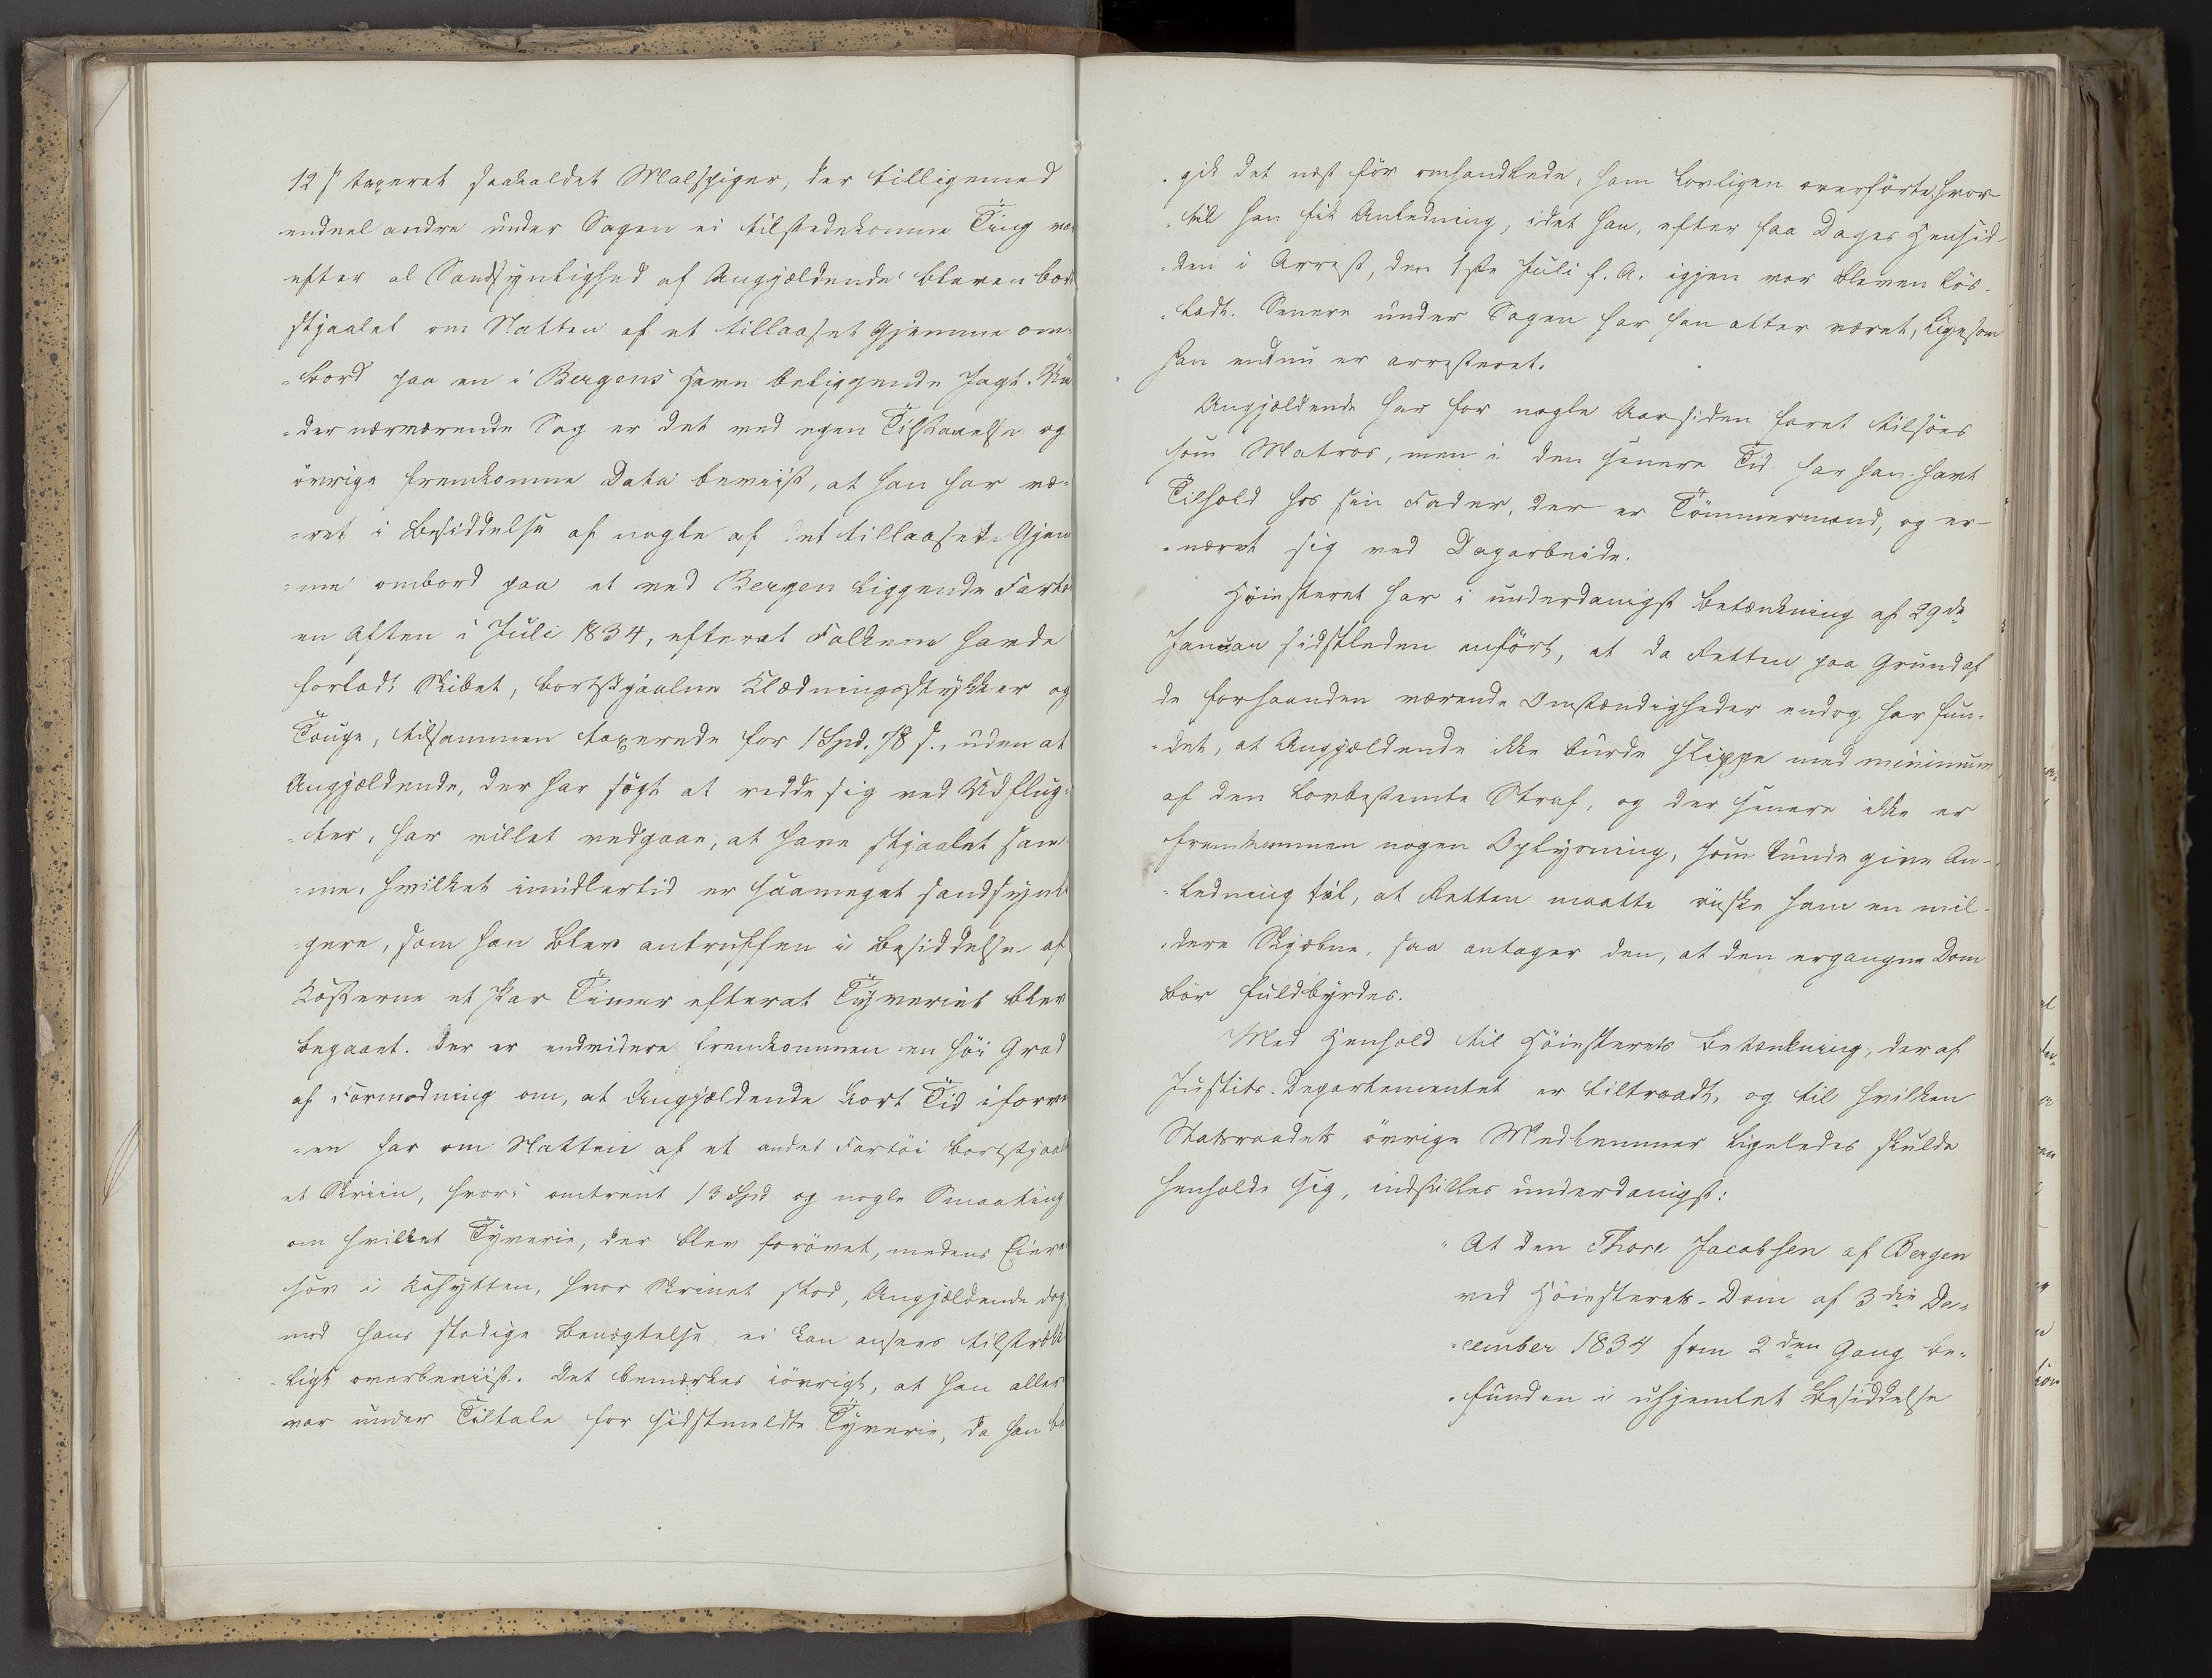 12 ſ taxeret saakaldet Malspiger, der tilligemed
endeel andre under Sagen ei tilstedekomne Ting var
efter al Sandsynlighed af Angjældende bleven bort
stjaalet om Natten af et tillaaset Gjemme om-
=bord paa en i Bergens Havn beliggende Jagt. Un
=der nærværende Sag er det ved egen Tilstaaelse og
övrige fremkomne Data beviist, at han har væ-
=ret i Besiddelse af nogle af et tillaaset Gjem
=me ombord paa et ved Bergen liggende Fartöi
en Aften i Juli 1834, efterat Folkene havde
forladt Skibet, bortstjaalne Klædningsstykker og
Touge, tilsammen taxerede for 1 Spd. 78 ſ., uden at
Angjældende, der har sögt at redde sig ved Udflug-
=ter, har villet vedgaae, at have stjaalet sam
=me, hvilket imidlertid er saameget sandsynli
=gere, som han blev antruffen i Besiddelse af
Kosterne et Par Timer efterat Tyveriet blev
begaaet. Der er endvidere fremkommen en höi Grad
af Formodning om, at Angjældende kort Tid iforve
=en har om Natten af et andet Fartöi bortstjaal
et Skriin, hvori omtrent 13 Spd og nogle Smaating
om hvilket Tyverie, der blev forövet, medens Eieren
sov i Kahytten, hvor Skrinet stod, Angjældende dog
mod hans stadige Benægtelse ei kan ansees tilstrække
=ligt overbeviist. Det bemærkes iövrigt, at han alle
var under Tiltale for sidstmeldte Tyverie, da han be
=gik det næst för omhandlede, ham lovligen overförte, hvor-
=til han fik Anledning, idet han, efter faa Dages Hensid-
=den i Arrest, den 1ste Juli f. A. igjen var bleven lös-
=ladt. Senere under Sagen har han atter været, ligesom
han endnu er arresteret.
Angjældende har for nogle Aar siden faret tilsöes
som Matros, men i den senere Tid har han havt
Tilhold hos sin Fader, der er Tömmermand, og er-
=næret sig ved Dagarbeide.
Höiesteret har i underdanigst Betænkning af 29de
Januar sidstleden anfört, at da Retten paa Grund af
de forhaanden værende Omstændigheder endog har fun-
=det, at Angjældende ikke burde slippe med minimum
af den lovbestemte Straf, og der senere ikke er
fremkommen nogen Oplysning, som kunde give An-
=ledning til, at Retten maatte önske ham en mil-
=dere Skjæbne, saa antager den, at den ergangne Dom
bör fuldbyrdes.
Med Henhold til Höiesterets Betænkning, der af
Justits-Departementet er tiltraadt, og til hvilken
Statsraadets övrige Medlemmer ligeledes skulde
henholde sig, indstilles underdanigst:
" At den Thore Jacobsen af Bergen
ved Höiesterets-Dom af 3die De-
=cember 1834 som 2den Gang be-
=funden i uhjemlet Besiddelse